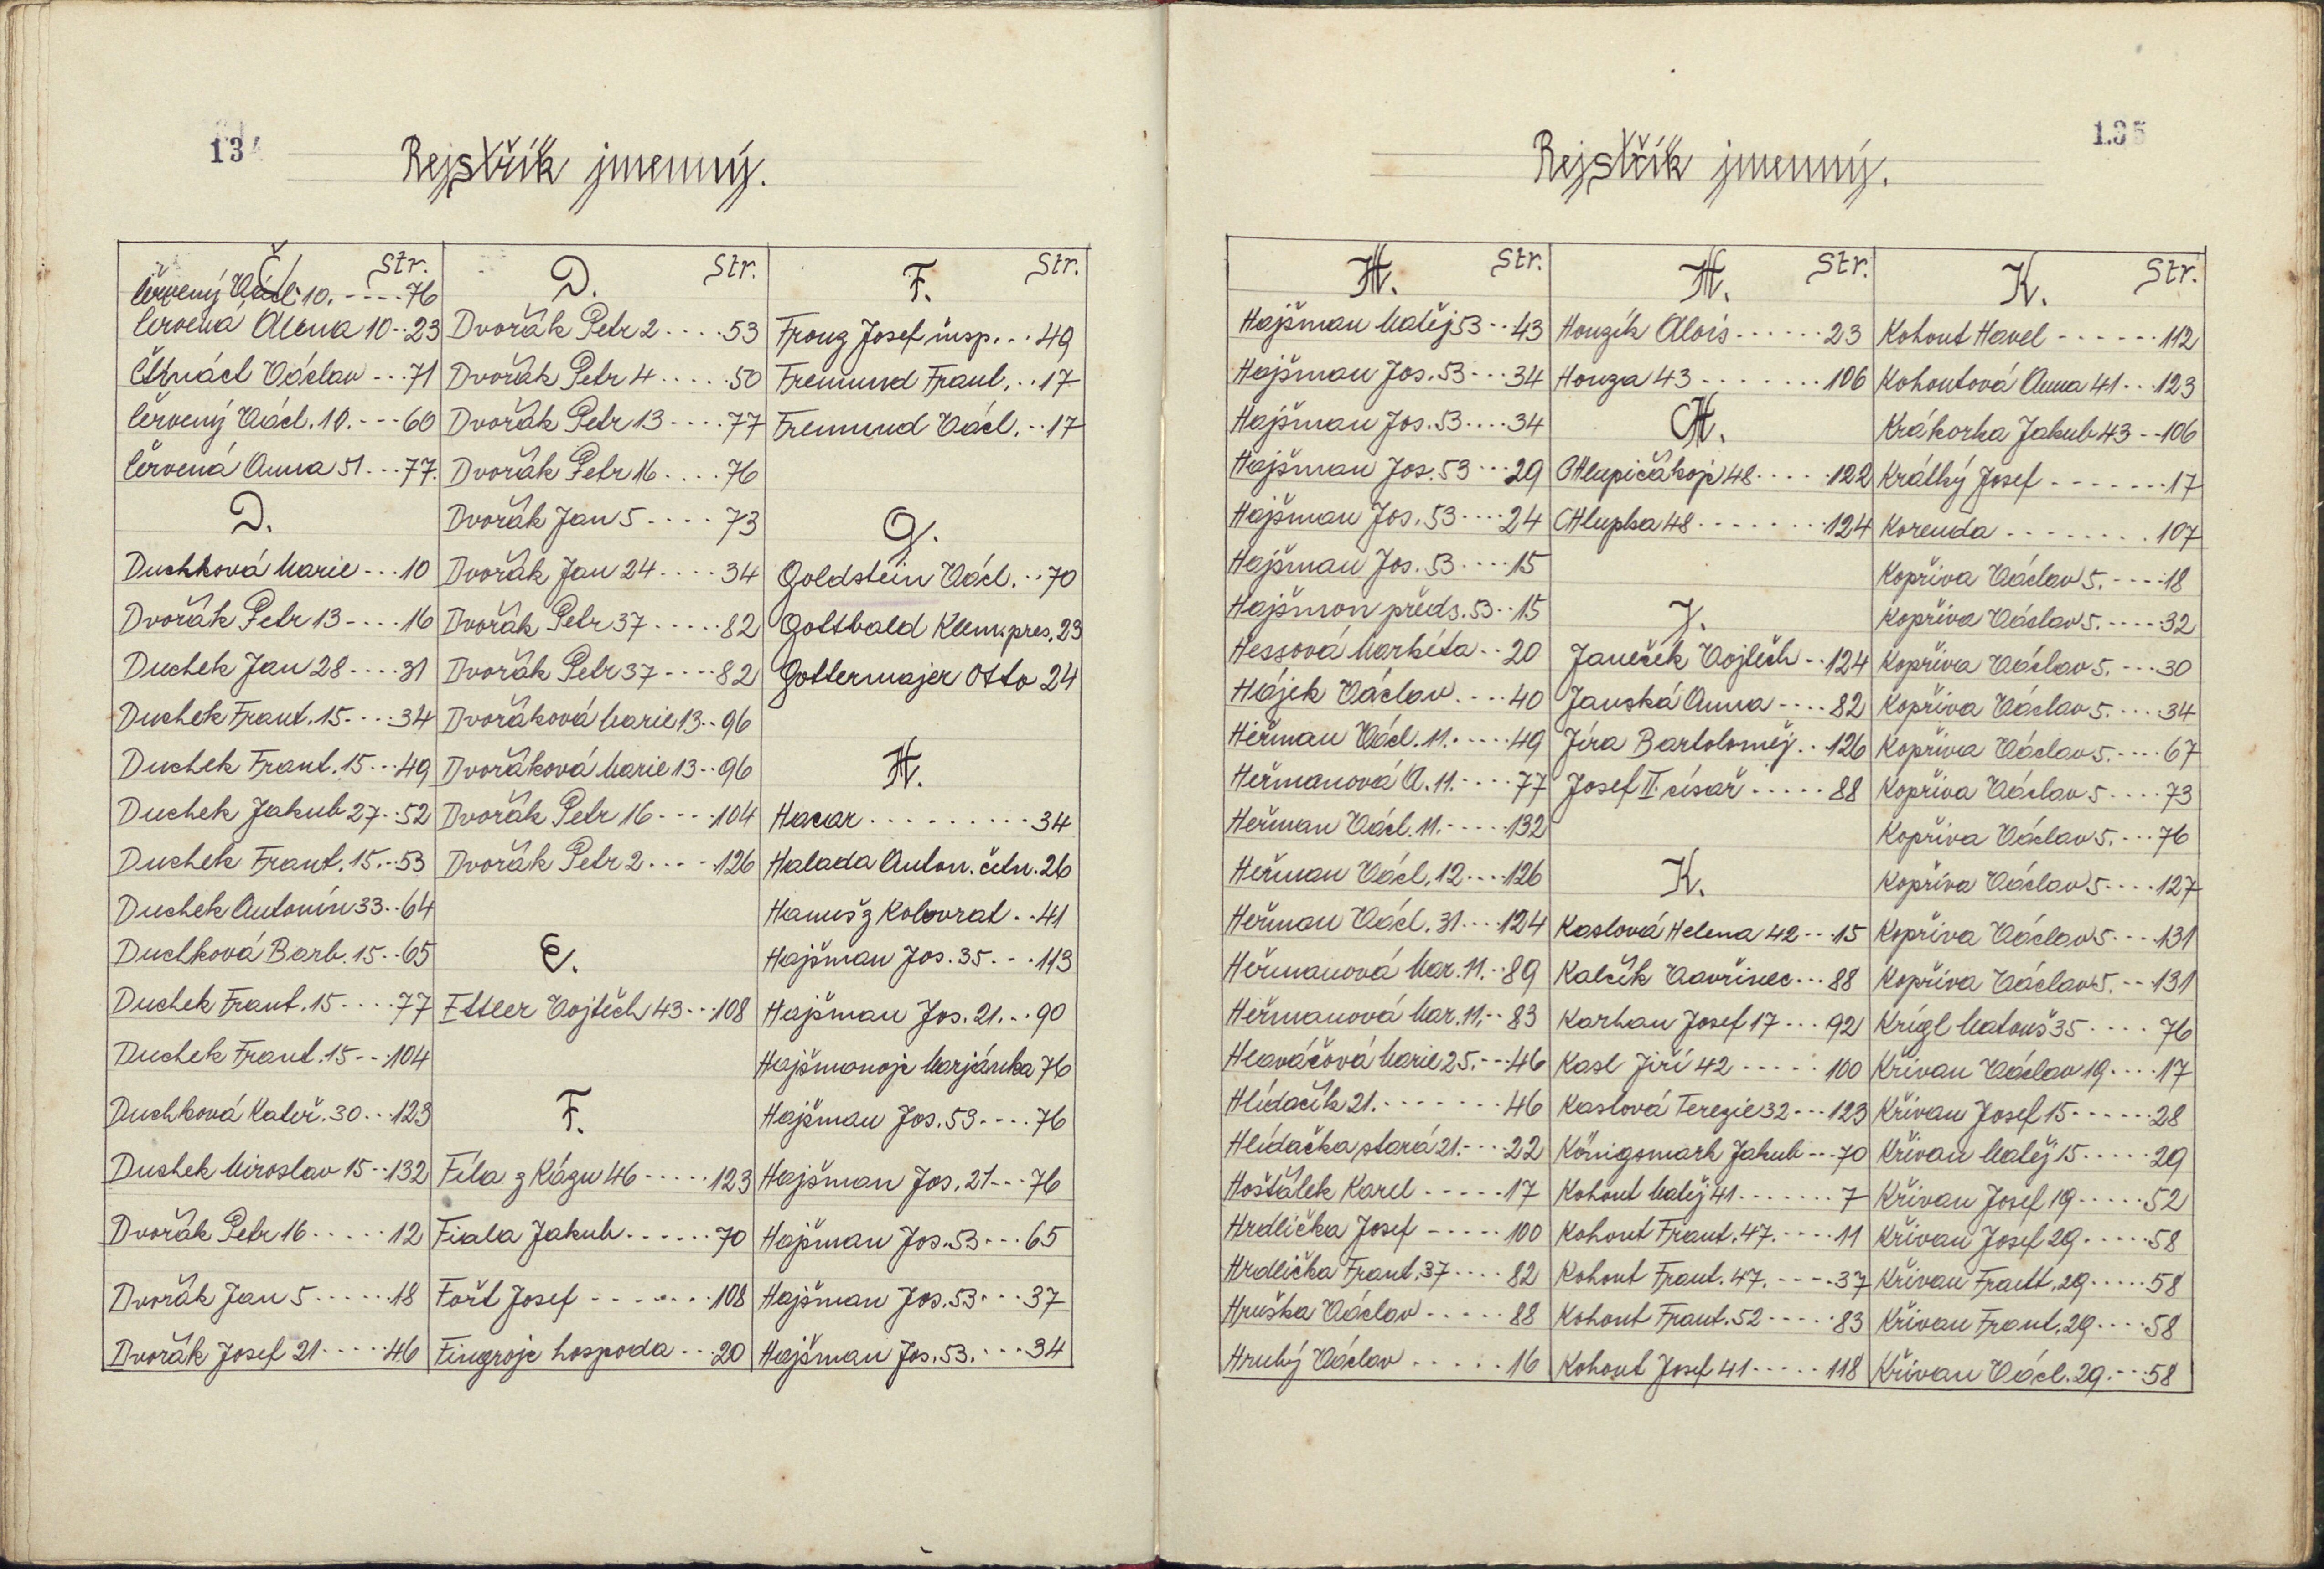 134
Rejstřík jmenný.
Č. Str.
Červený Václ. 10. - - - - 76
Červená Alena 10 - - 23
Čtrnáct Václav - - - 71
Červený Václ. 10. - - - 60
Červená Anna 51 - - - 77.
D.
Duchková Marie - - - 10
Dvořák Petr 13 - - - - 16
Duchek Jan 28 - - - - 31
Duchek Frant. 15 - - - - 34
Duchek Frant. 15 - - - 49
Duchek Jakub 27 - - 52
Duchek Frant. 15. - - 53
Duchek Antonín 33 - - 64
Duchková Barb. 15 - - 65
Duchek Frant. 15 - - - - 77
Duchek Frant. 15 - - - 104
Duchková Kateř. 30 - - - 123
Duchek Miroslav 15 - - 132
Dvořák Petr 16 - - - - - 12
Dvořák Jan 5 - - - - - 18
Dvořák Josef 21 - - - - - 46
D. Str.
Dvořák Petr 2 - - - - 53
Dvořák Petr 4 - - - - - 50
Dvořák Petr 13 - - - - 77
Dvořák Petr 16 - - - - 76
Dvořák Jan 5 - - - - 73
Dvořák Jan 24 - - - - 34
Dvořák Petr 37 - - - - - 82
Dvořák Petr 37 - - - - 82
Dvořáková Marie 13 - - 96
Dvořáková Marie 13 - - 96
Dvořák Petr 16 - - - - 104
Dvořák Petr 2 - - - - 126
E.
Ettler Vojtěch 43 - - - 108
F.
Fíla z Kágu 46 - - - - - 123
Fiala Jakub - - - - - - 70
Fořt Josef - - - - - - - 108
Fingroje hospoda - - - 20
F. Str.
Fronz Josef insp. - - - 49
Fremund Frant. - - 17
Fremund Václ. - - 17
G.
Goldstein Václ. - - 70
Gottbald Klem. pres. 23
Gottermajer Otto 24
H.
Hacar - - - - - - - - - 34
Halada Anton. četn. 26
Hanuš z Kolovrat - - 41
Hajšman Jos. 35 - - - 113
Hajšman Jos. 21. - - 90
Hajšmanoje Marjánka 76
Hajšman Jos. 53 - - - - 76
Hajšman Jos. 21 - - - 76
Hajšman Jos. 53 - - - 65
Hajšman Jos. 53 - - - 37
Hajšman Jos. 53. - - - 34
135
Rejstřík jmenný.
H. Str.
Hajšman Matěj 53 - - 43
Hajšman Jos. 53 - - - 34
Hajšman Jos. 53 - - - - 34
Hajšman Jos. 53 - - - 29
Hajšman Jos. 53 - - - - 24
Hajšman Jos. 53 - - - - 15
Hajšman předs. 53 - - 15
Hessová Markéta - - 20
Hájek Václav - - - - 40
Heřman Václ. 11. - - - - 49
Heřmanová A. 11. - - - - 77
Heřman Václ. 11. - - - - 132
Heřman Václ. 12 - - - - 126
Heřman Václ. 31 - - - - 124
Heřmanová Mar. 11. - - 89
Heřmanová Mar. 11. - - 83
Hlaváčová Marie 25. - - - 46
Hlídačík 21. - - - - - - - 46
Hlídačka stará 21. - - - 22
Hoštálek Karel - - - - - 17
Hrdlička Josef - - - - - 100
Hrdlička Frant. 37 - - - - 82
Hruška Václav - - - - - 88
Hrubý Václav - - - - - 16
H. Str.
Honzík Alois - - - - - - 23
Honza 43 - - - - - - - 106
CH.
Chlupičákoje 48 - - - - - 122
Chlupsa 48 - - - - - - - 124
J.
Janečík Vojtěch - - 124
Janská Anna - - - - 82
Jíra Bartoloměj - - 126
Josef II. císař - - - - - 88
K.
Kaslová Helena 42 - - 15
Kalčík Vavřinec - - - 88
Karhan Josef 17 - - - 92
Kasl Jiří 42 - - - - - 100
Kaslová Terezie 32 - - - 123
Königsmark Jakub - - - 70
Kohout Matěj 41 - - - - - - - 7
Kohout Frant. 47. - - - - 11
Kohout Frant. 47. - - - - 37
Kohout Frant. 52 - - - - - 83
Kohout Josef 41 - - - - - 118
K. Str.
Kohout Havel - - - - - - 112
Kohoutová Anna 41 - - - 123
Krákorka Jakub 43 - - 106
Krátký Josef - - - - - - - 17
Korenda - - - - - - - - 107
Kopřiva Václav 5. - - - - 18
Kopřiva Václav 5. - - - - 32
Kopřiva Václav 5. - - - 30
Kopřiva Václav 5. - - - - 34
Kopřiva Václav 5. - - - - 67
Kopřiva Václav 5 - - - - 73
Kopřiva Václav 5. - - - 76
Kopřiva Václav 5 - - - - 127
Kopřiva Václav 5 - - - 131
Kopřiva Václav 5. - - 131
Krígl Matouš 35 - - - - 76
Křivan Václav 19 - - - - 17
Křivan Josef 15 - - - - - - 28
Křivan Matěj 15 - - - - - 29
Křivan Josef 19 - - - - - 52
Křivan Josef 29 - - - - - 58
Křivan Frantt. 29 - - - - - 58
Křivan Frant. 29 - - - - 58
Křivan Václ. 29. - - - 58